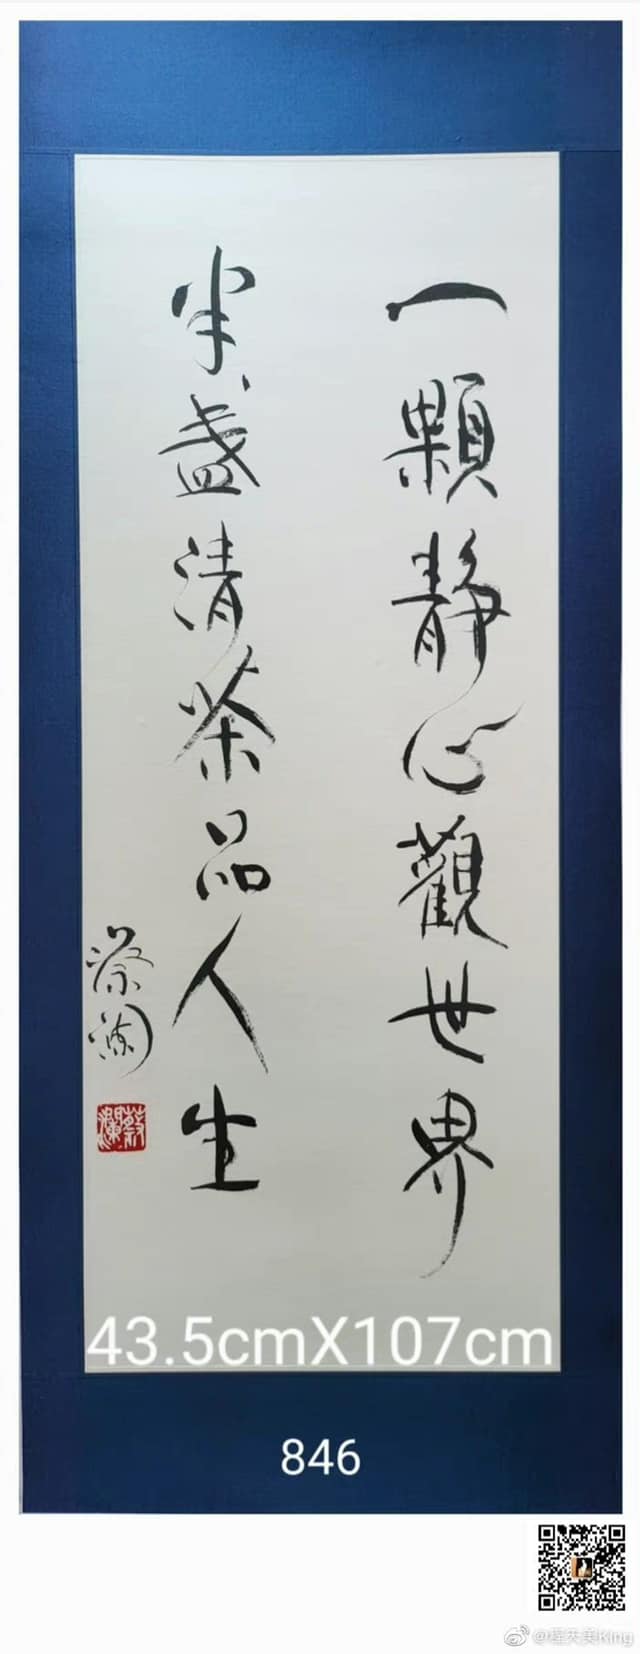 一顆靜心觀世界
半盞清茶品人生
蔡瀾
蔡瀾
43.5cmX107cm
846